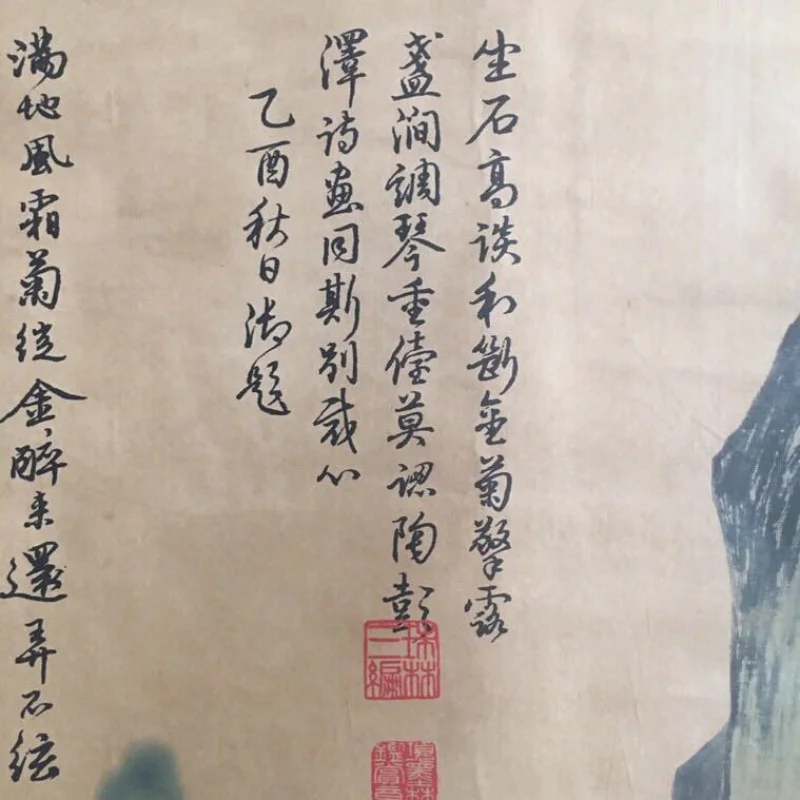 坐石高談利斷金菊擎露
盞澗調琴重儓莫認陶彭
澤詩畫同斯別裁心
乙酉秋日御題
滿地風霜菊綻金醉來還弄不弦